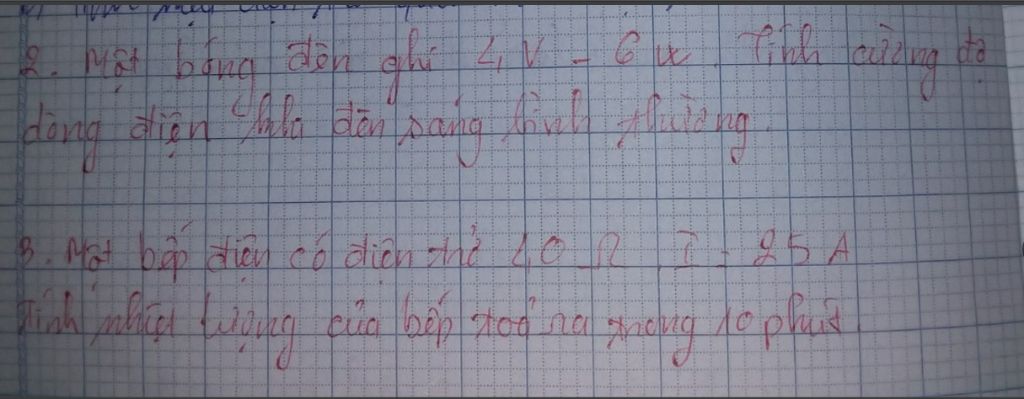 2. Một bóng đèn ghi 4V - 6W. Tính cường độ
dòng điện khi đèn sáng bình thường.
3. Một bếp điện có điện trở 40 Ω, I = 25 A
Tính nhiệt lượng của bếp toả ra trong 10 phút